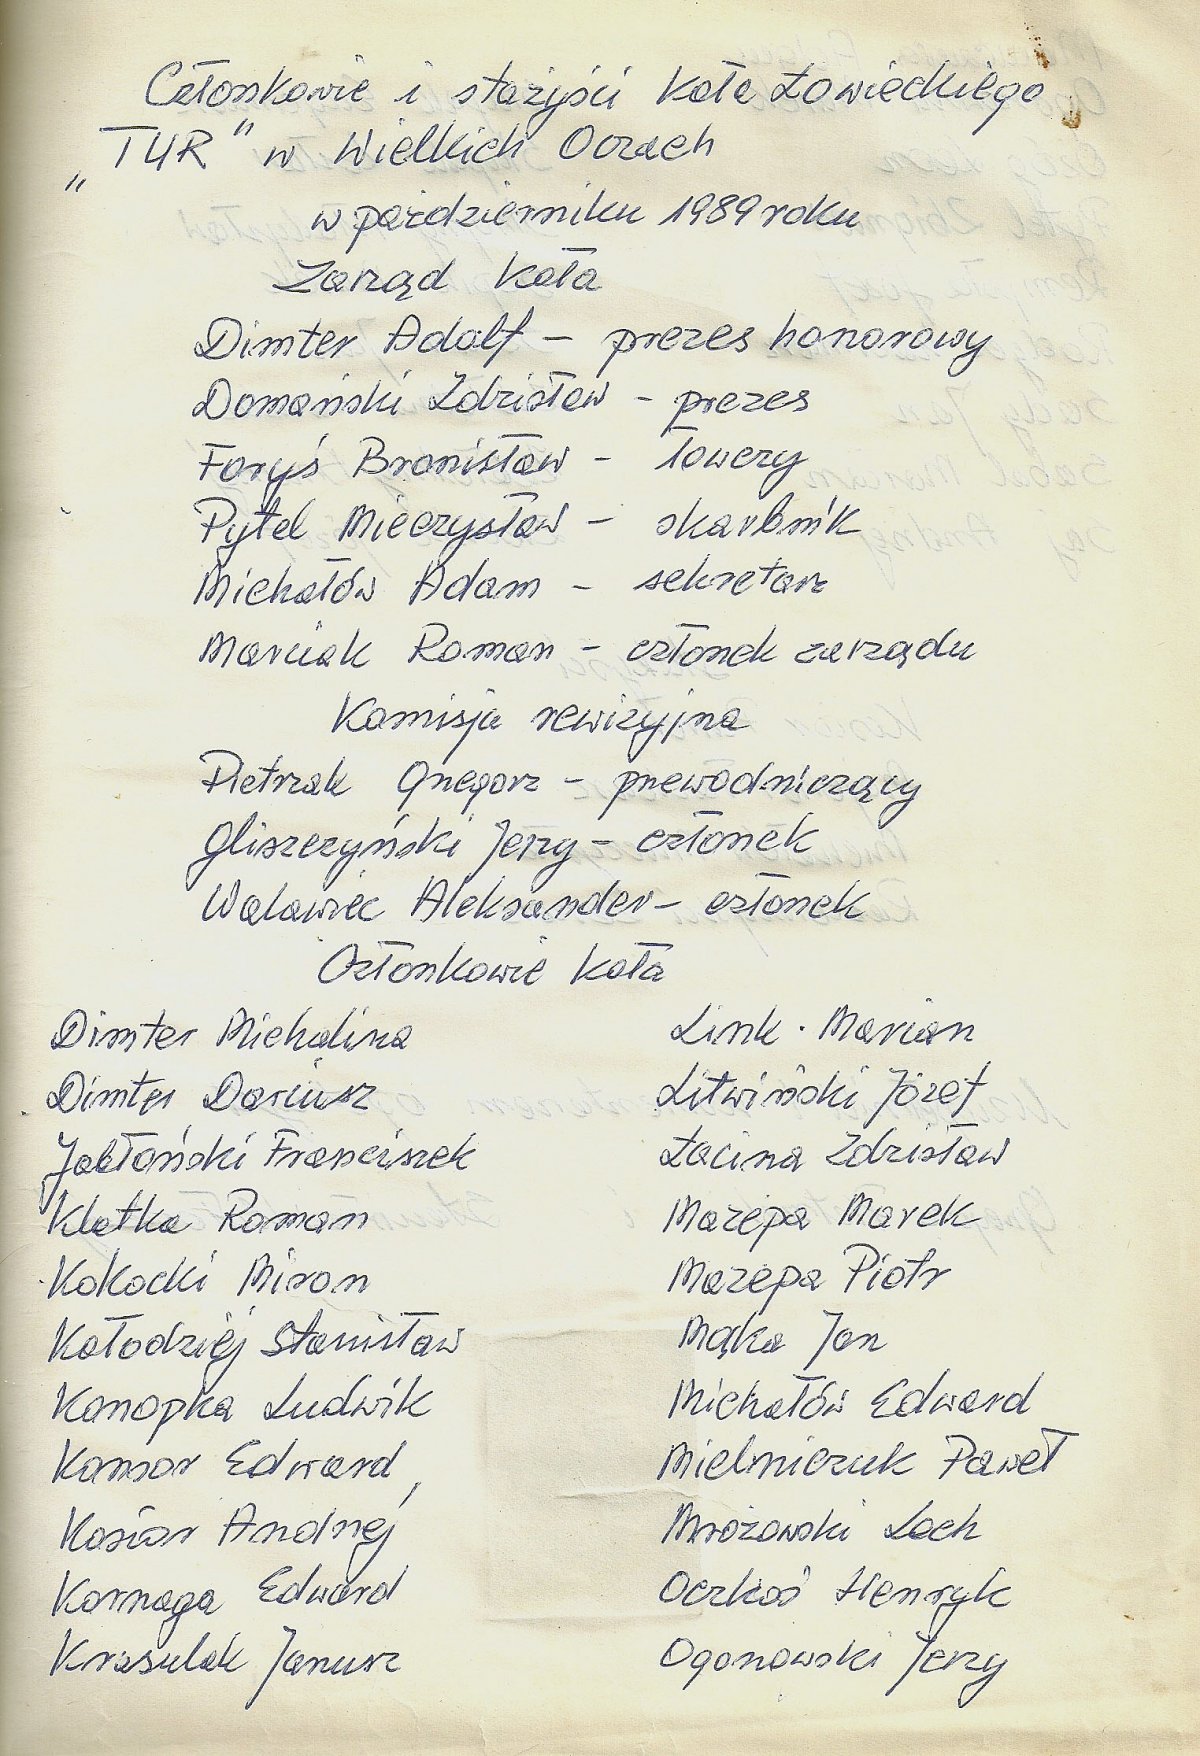 Członkowie i stażyści Koła Łowieckiego
„TUR" w Wielkich Oczach
w październiku 1989 roku
Zarząd Koła
Dimter Adolf – prezes honorowy
Domański Zdzisław – prezes
Foryś Bronisław – łowczy
Pytel Mieczysław – skarbnik
Michałów Adam – sekretarz
Marciak Roman – członek zarządu
Komisja rewizyjna
Pietrzak Grzegorz – przewodniczący
Gliszczyński Jerzy – członek
Walawiec Aleksander – członek
Członkowie Koła
Dimter Michalina
Dimter Dariusz
Jabłoński Franciszek
Klatka Roman
Kokocki Miron
Kołodziej Stanisław
Konopka Ludwik
Konsor Edward
Kosior Andrzej
Kornaga Edward
Krasulak Janusz
Link Marian
Litwiński Józef
Łacina Zdzisław
Mazepa Marek
Mazepa Piotr
Mąka Jan
Michałów Edward
Mielniczuk Paweł
Mrożowski Lech
Oczkoś Henryk
Ogonowski Jerzy